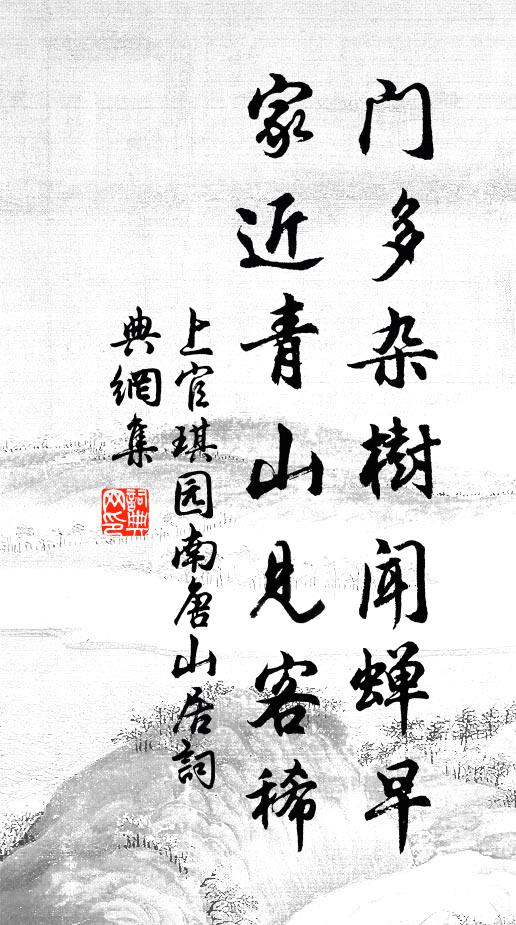 门多杂樹闻蝉早
家近青山见客稀
上官琪园南唐山居詞
典網集
詞典网印